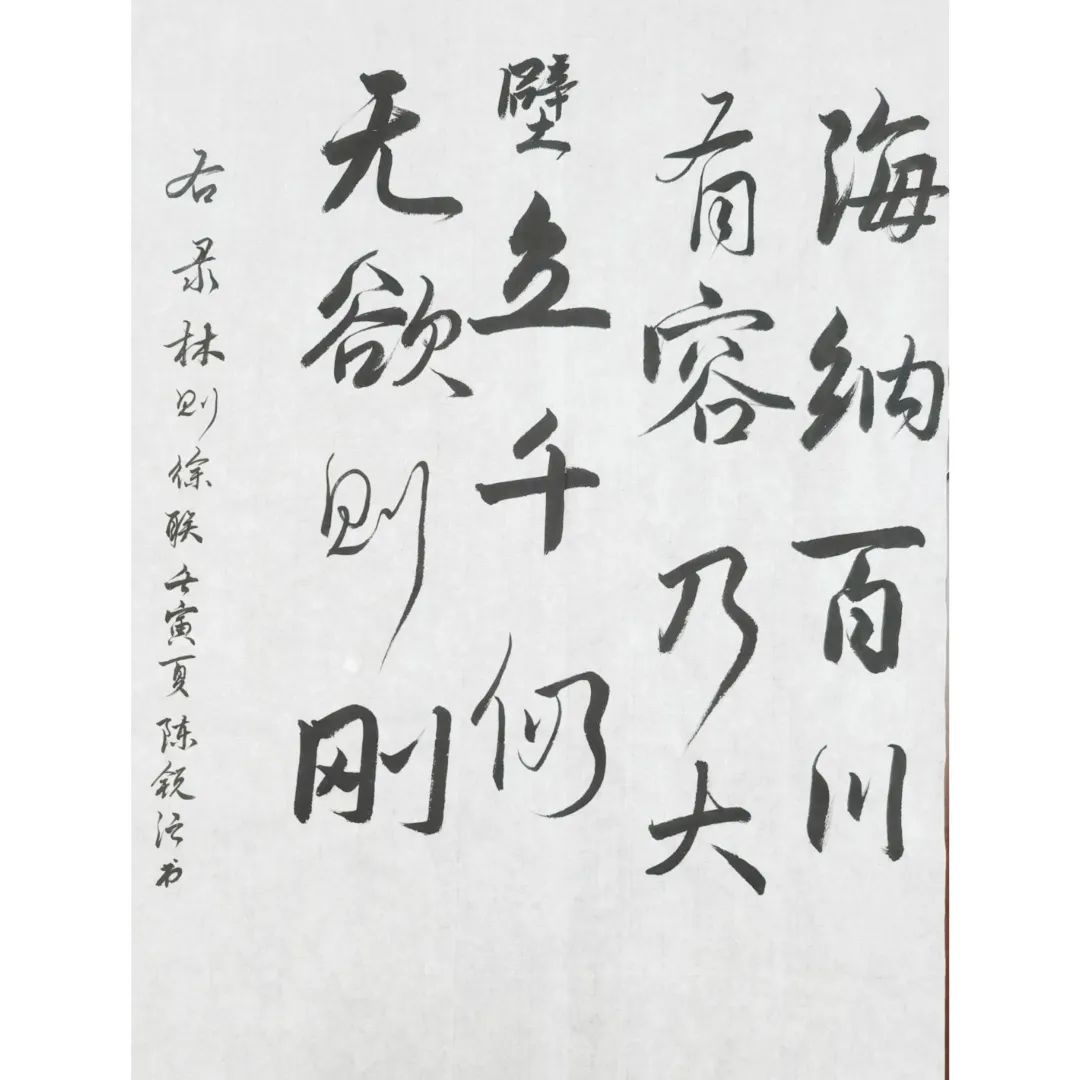 海纳百川
有容乃大
壁立千仞
无欲则刚
右录林则徐联壬寅夏陈锐 书